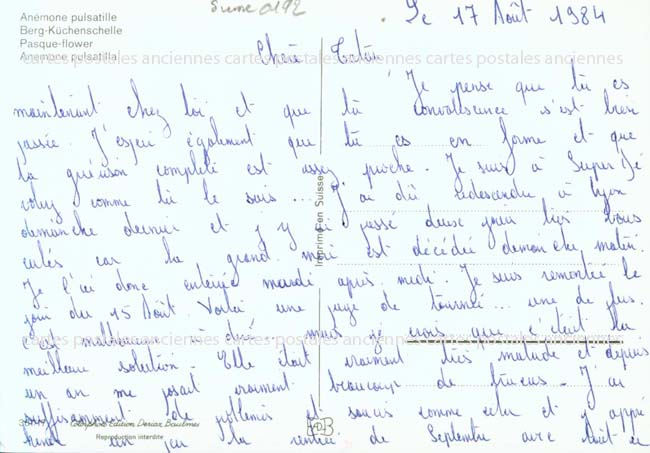 Anémone pulsatille
Berg-Küchenschelle
Pasque-flower
Anemone pulsatilla
Le 17 Août 1984
cartes postales anciennes cartes postales anciennes cartes postales anciennes
Chère Tatie
Je pense que tu es
maintenant chez toi et que ta convalescence s'est bien
passée. J'espère également que tu es en forme et que
la guérison complète est assez proche. Je suis à Super Dé
voluy comme tu le sais... J'ai dû redescendre à Lyon
dimanche dernier et j'y ai passé deux jours très bous
culés car la grand mère est décédée dimanche matin.
Je l'ai donc enterrée mardi après midi. Je suis remontée le
jour du 15 Août. Voilà une page de tournée... une de plus.
C'est malheureux à dire mais je crois que c'était la
cartes postales anciennes cartes postales anciennes cartes postales anciennes
meilleure solution. Elle était vraiment très malade et depuis
un an me posait vraiment beaucoup de tracas. J'ai
suffisamment de problèmes et soucis comme cela et j'appré
hende un peu la rentrée de Septembre avec
Imprimé en Suisse
Colorphoto Edition Deriaz Baulmes
Reproduction interdite